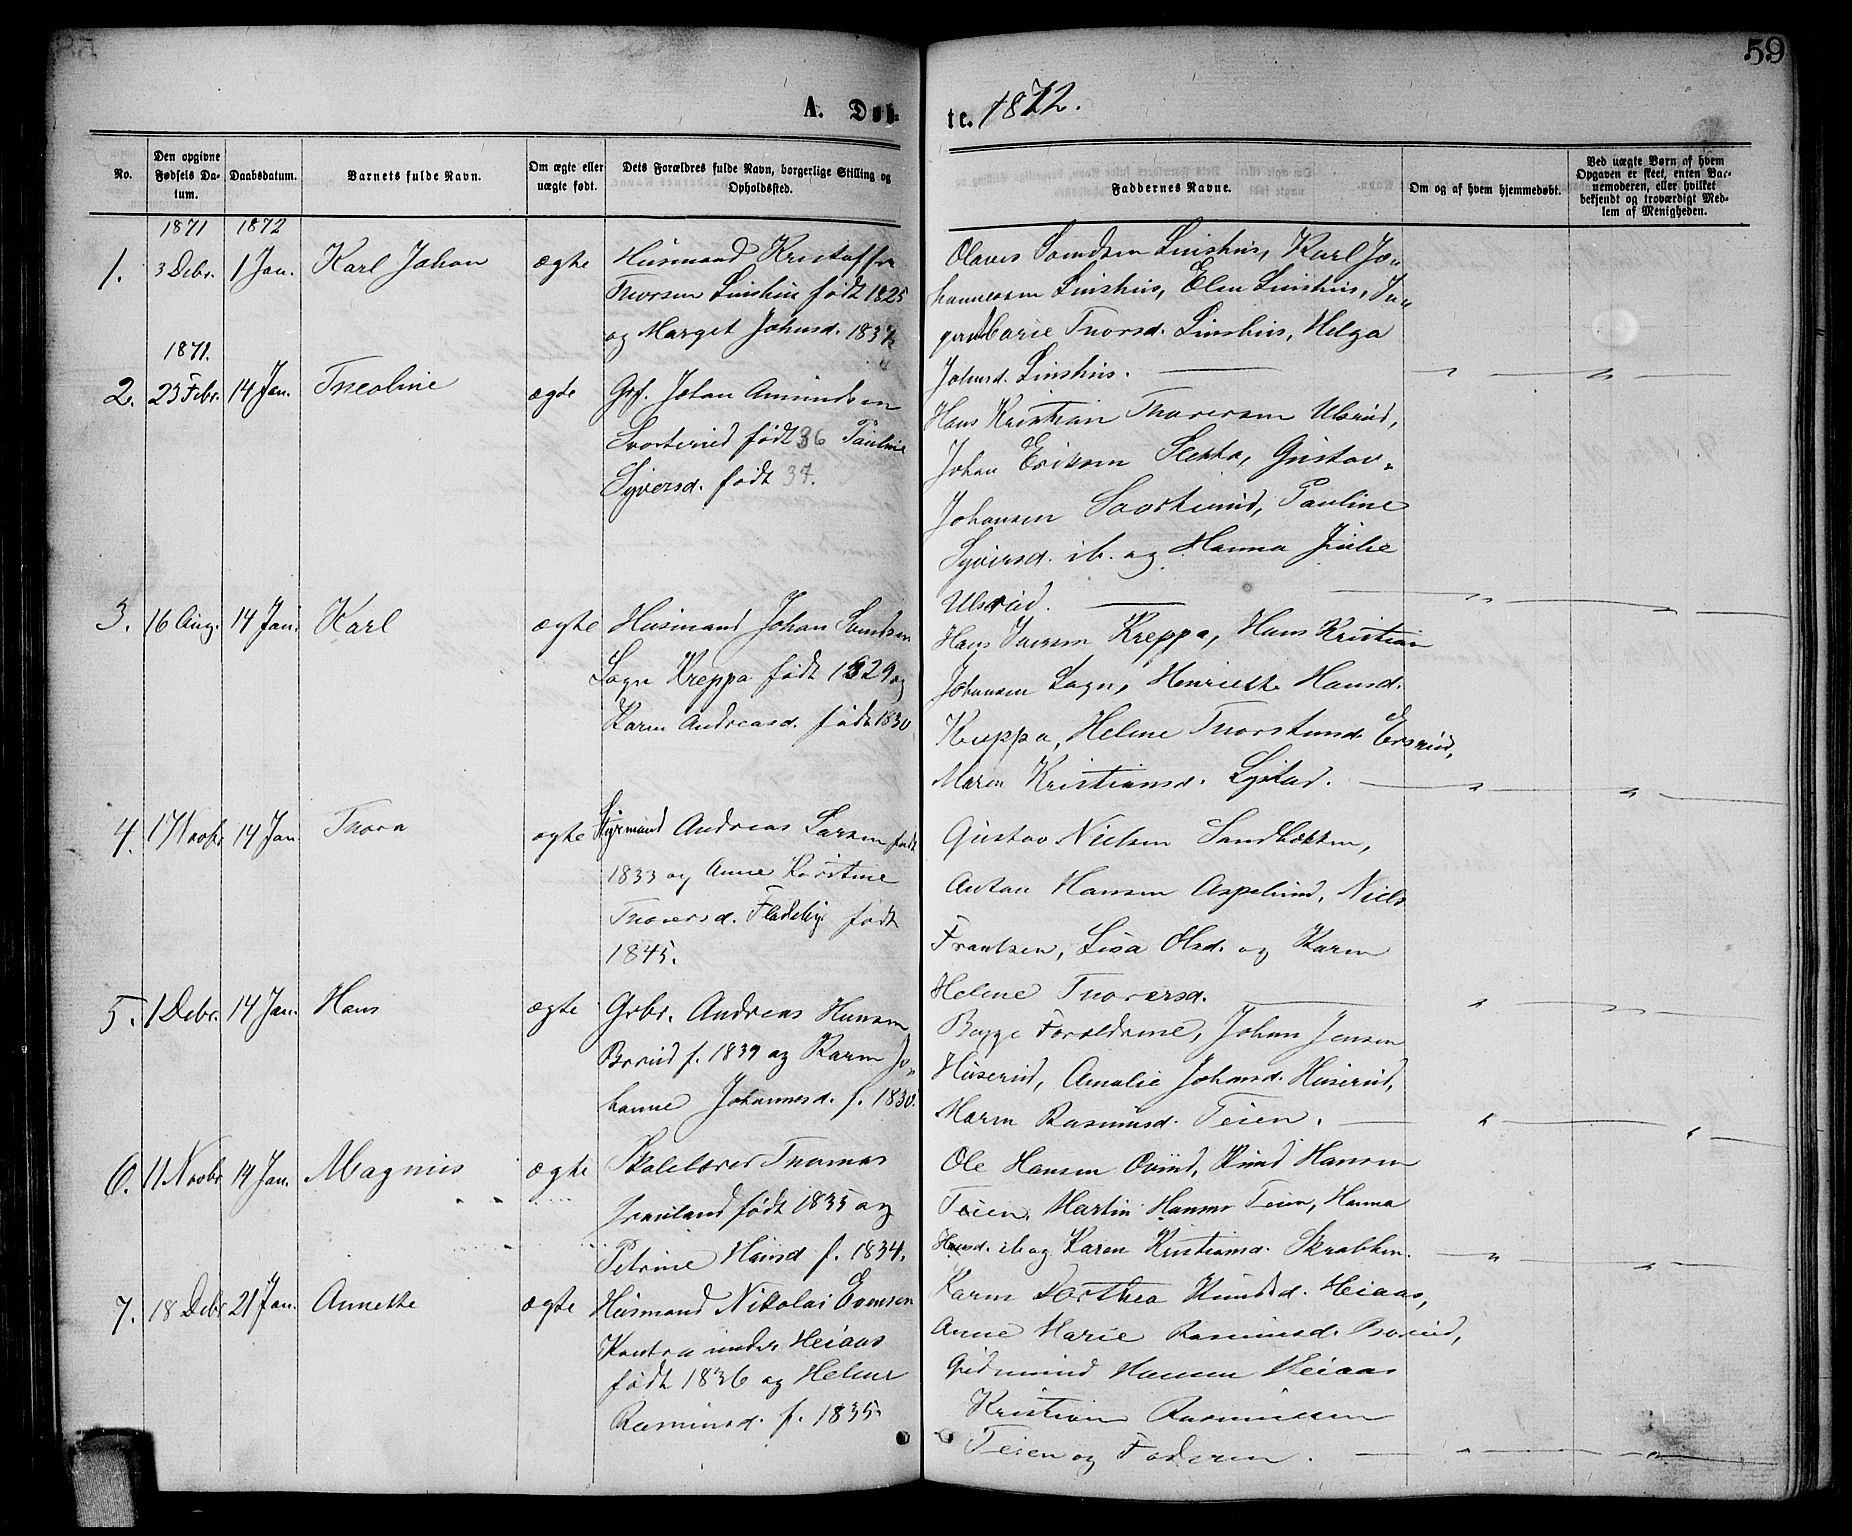 59
A. Døb-
te. 1872.
No.
Den opgivne Fødsels Da-tum.
Daabsdatum.
Barnets fulde Navn.
Om ægte eller uægte født.
Dets Forældres fulde Navn, borgerlige Stilling og Opholdssted.
Faddernes Navne.
Om og af hvem hjemmedøbt.
Ved uægte Børn af hvem Opgaven er skeet, enten Bar-nemoderen, eller hvilket bekjendt og troværdigt Med-lem af Menigheden.
1871 1872
1. 3 Debr. 1 Jan. Karl Johan ægte Husmand Kristoffer
Thorsen Linshus født 1825
og Marget Johnsd. 1837
Olaves Linshus, Karl Jo-
hannessen Linshus, Elen Linshus, In-
Marie Thorsd. Linshus, Helga
Johnsd. Linshus.
1871.
2. 23 Febr. 14 Jan. Theoline ægte Grf. Johan Amundsen
Svarterud født 36 Pauline
Syversd. født 37.
Hans Kristian Thoresen Ulsrud,
Johan Eriksen Sletta, Gustav
Johansen Svarterud, Pauline
Syversd. ib. og Hanna Julie
Ulsrud.
3. 16 Aug. 14 Jan. Karl ægte Husmand Johan
Sogn Kreppa født 1829 og
Karen Andreasd. født 1830
Hans Kreppa, Hans Kristian
Johansen Sogn, Henriette Hansd.
Kreppa, Helene Thorstensd. Ersrud,
Maren Kristiansd. Lystad.
4. 17 Novbr 14 Jan Thora ægte Styrmand Andreas Larsen født
1833 og Anne Kristine
Thoversd. Fladeby født
1845.
Gustav Nielsen Sandbakken,
Anton Hansen Aspelund, Niels
Frantsen, Lisa Olsd. og Karen
Helene Thoversd.
5. 1 Debr. 14 Jan. Hans ægte Grbr. Andreas Hansen
f. 1839 og Karen Jo-
hanne Johannesd. f. 1830.
Begge Forældrene, Johan Jensen
Huserud, Amalie Johansd. Huserud,
Maren Rasmusd. Teien.
6. 11 Novbr 14 Jan. Magnus ægte Skolelærer Thomas
født 1835 og
Petrine Hansd f. 1834.
Ole Hansen Knud Hansen
Teien, Martin Hansen Teien, Hanna
Hansd. ib og Karen Kristiansd. Skrabben.
7. 18 Debr 21 Jan. Annette ægte Husmand Nikolai Evensen
under Heiaas
født 1836 og Helene
Rasmusd. f. 1835.
Karen Dorthea Knudsd. Heiaas,
Anne Marie Rasmusd.
Gudmund Hansen Heiaas
Kristian Rasmussen
Teien og Faderen.